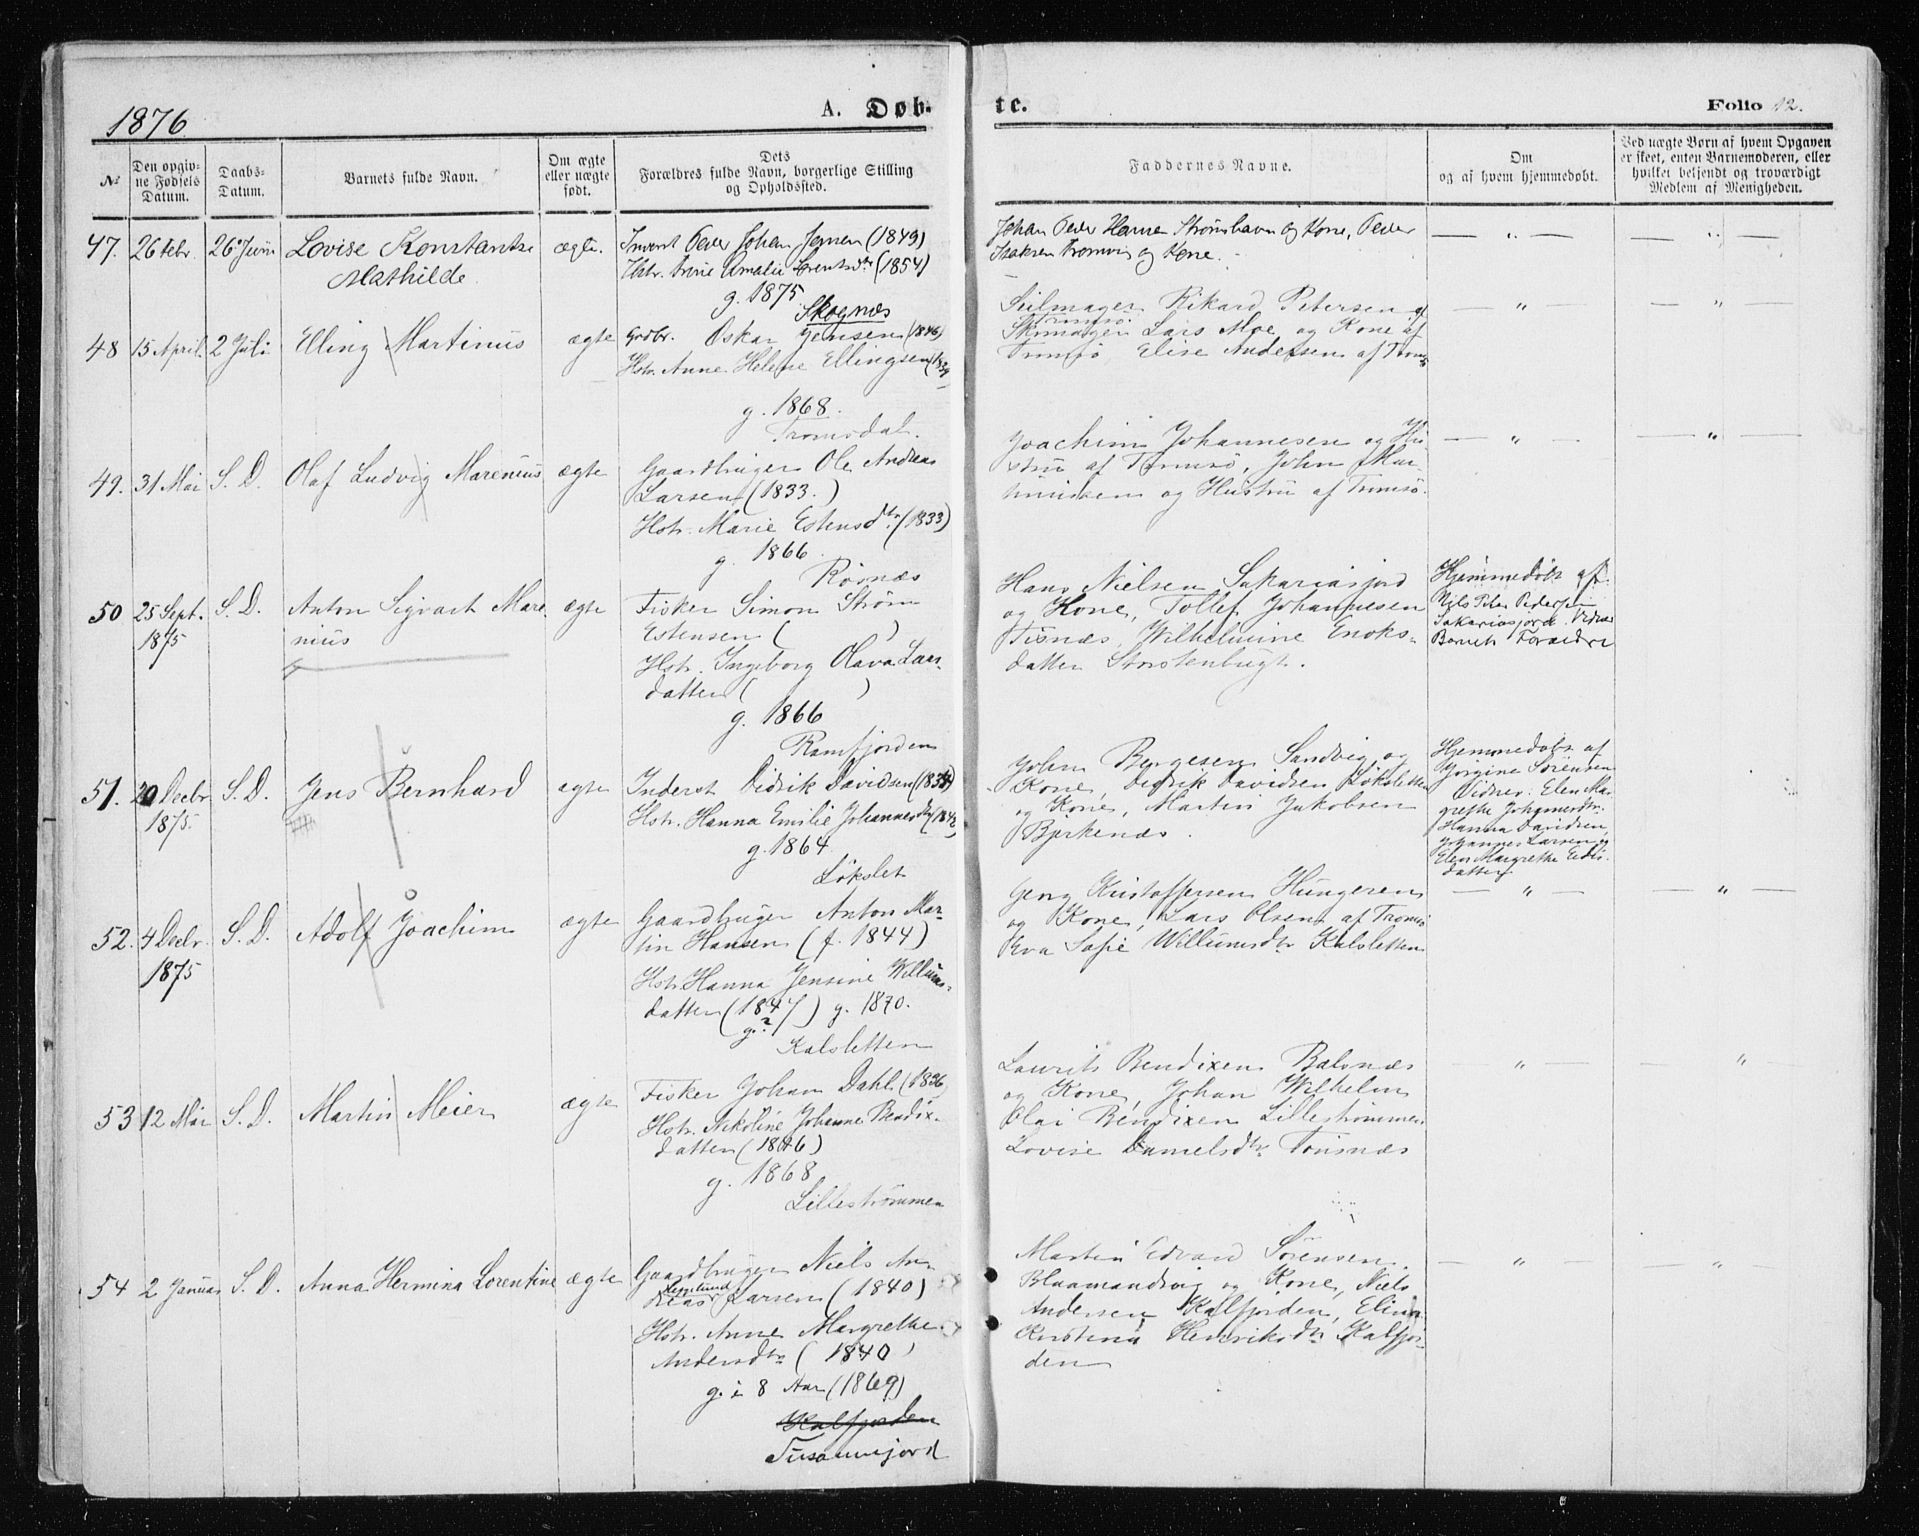 1876
A. Døb-
te.
Folio 12.
№
Den opgiv-
ne Fødsels
Datum.
Daabs-
Datum.
Barnets fulde Navn.
Om ægte
eller uægte
født.
Dets
Forældres fulde Navn, borgerlige Stilling
og Opholdssted.
Faddernes Navne.
Om
og af hvem hjemmedøbt.
Ved uægte Børn af hvem Opgaven
er skeet, enten Barnemoderen, eller
hvilket beljendt og troværdigt
Medlem af Menigheden.
47. 26 Febr. 26 Juni Lovise Konstantse
Mathilde
ægte.
Peder Johan Jensen (1849)
Hstr. Trine Amalie Lorentsdtr (1854)
g. 1875
Skognæs
Johan Peder Hansen Strømshavn og Kone, Peder
Isaksen Tromvig og Kone.
48 15 April. 2 Juli Elling Martinus ægte
Grdbr. Oskar Jensen (1846)
Hstr. Anne Helene Ellingsen
g. 1868.
Tromsdal.
Seilmager Rikard Petersen af
Tromsø.
Skomager Lars Moe og Kone af
Tromsø, Elise Andersen af Tromsø
49. 31 Mai S. D. Olaf Ludvig Marenius ægte
Gaardbruger Ole Andreas
Larsen (1833.)
Hstr. Marie Estensdtr. (1833)
g. 1866.
Røsnæs
Joachim Johannesen og Hu-
stru af Tromsø, John Mar-
tinussen og Hustru af Tromsø.
50 25 Sept. S. D. Anton Sigvart Mare
1875
nius
ægte
Fisker Simon Strøm
Estensen ( )
Hstr. Ingeborg Olava Lars-
datter ( )
g. 1866
Ramfjorden
Hans Nielsen Sakariasjord
og Kone, Tollef Johannesen
Tisnæs, Wilhelmine Enoks-
datter Storstenbugt.
Hjemmedøbt af
Nils Peter Pedersen
Sakariasjord. Vidner
Barnets Forældre
51. 20 Decbr S. D. Jens Bernhard ægte
1875.
Inderst Didrik Davidsen
Hstr. Hanna Emilie Johannesdtr (1842)
g. 1864.
Løkslet
John Bergesen Sandvig og
Kone, Didrik Davidsen Løksletten
og Kone, Martin Jakobsen
Bjerkenæs.
Hjemmedøbt af
Jørgine Sørensen
Vidner: Elen Mar
grethe Johannesdtr.
Hanna Davidsen,
Johannes Larsen og
Elen Margrethe
datter
52. 4 Decbr. S. D. Adolf Joachim ægte
1875
Gaardbruger Anton Mar-
tin Hansen (f. 1844)
Hstr. Hanna Jensine Willums-
datter (1847) g. 1870.
g.?
Kalsletten
Georg Kristoffersen Hungeren
og Kone, Lars Olsen af Tromsø
Eva Sofie Willumsdtr Kalsletten
53 12 Mai S. D. Martin Meier ægte
Fisker Johan Dahl (1836)
Hstr. Nikoline Johanne Bendix-
datter (1846)
g. 1868
Lillestrømmen
Laurits Bendixen Balsnæs
og Kone, Johan Wilhelm
Olai Bendixen Lillestrømmen
Lovise Danielsdtr. Tønsnæs
54 2 Januar S. D. Anna Hermina Lorentine ægte
Gaardbruger Niels An-
dreas Larsen (1840)
Hstr. Anne Margrethe
Andersdtr (1840)
g. i 8 Aar (1869)
Kalfjorden
Tusounijord
Martin Edvard Sørensen
Blaamandsvig og Kone, Niels
Andersen Kalfjorden, Elina
Kristina Henriksdtr Kalfjor-
den